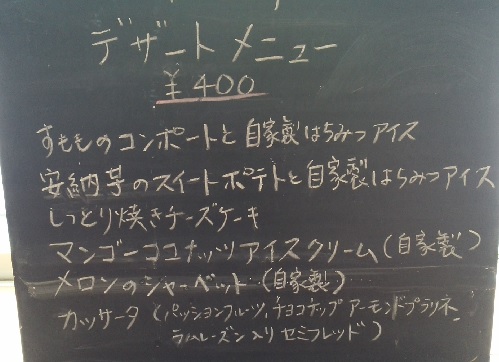 デザートメニュー
¥400
すもものコンポートと自家製はちみつアイス
安納芋のスイートポテトと自家製はちみつアイス
しっとり焼きチーズケーキ
マンゴーココナッツアイスクリーム(自家製)
メロンのシャーベット(自家製)
カッサータ(パッションフルーツ,チョコチップ アーモンドプラリネ,
ラムレーズン入り セミフレッド)